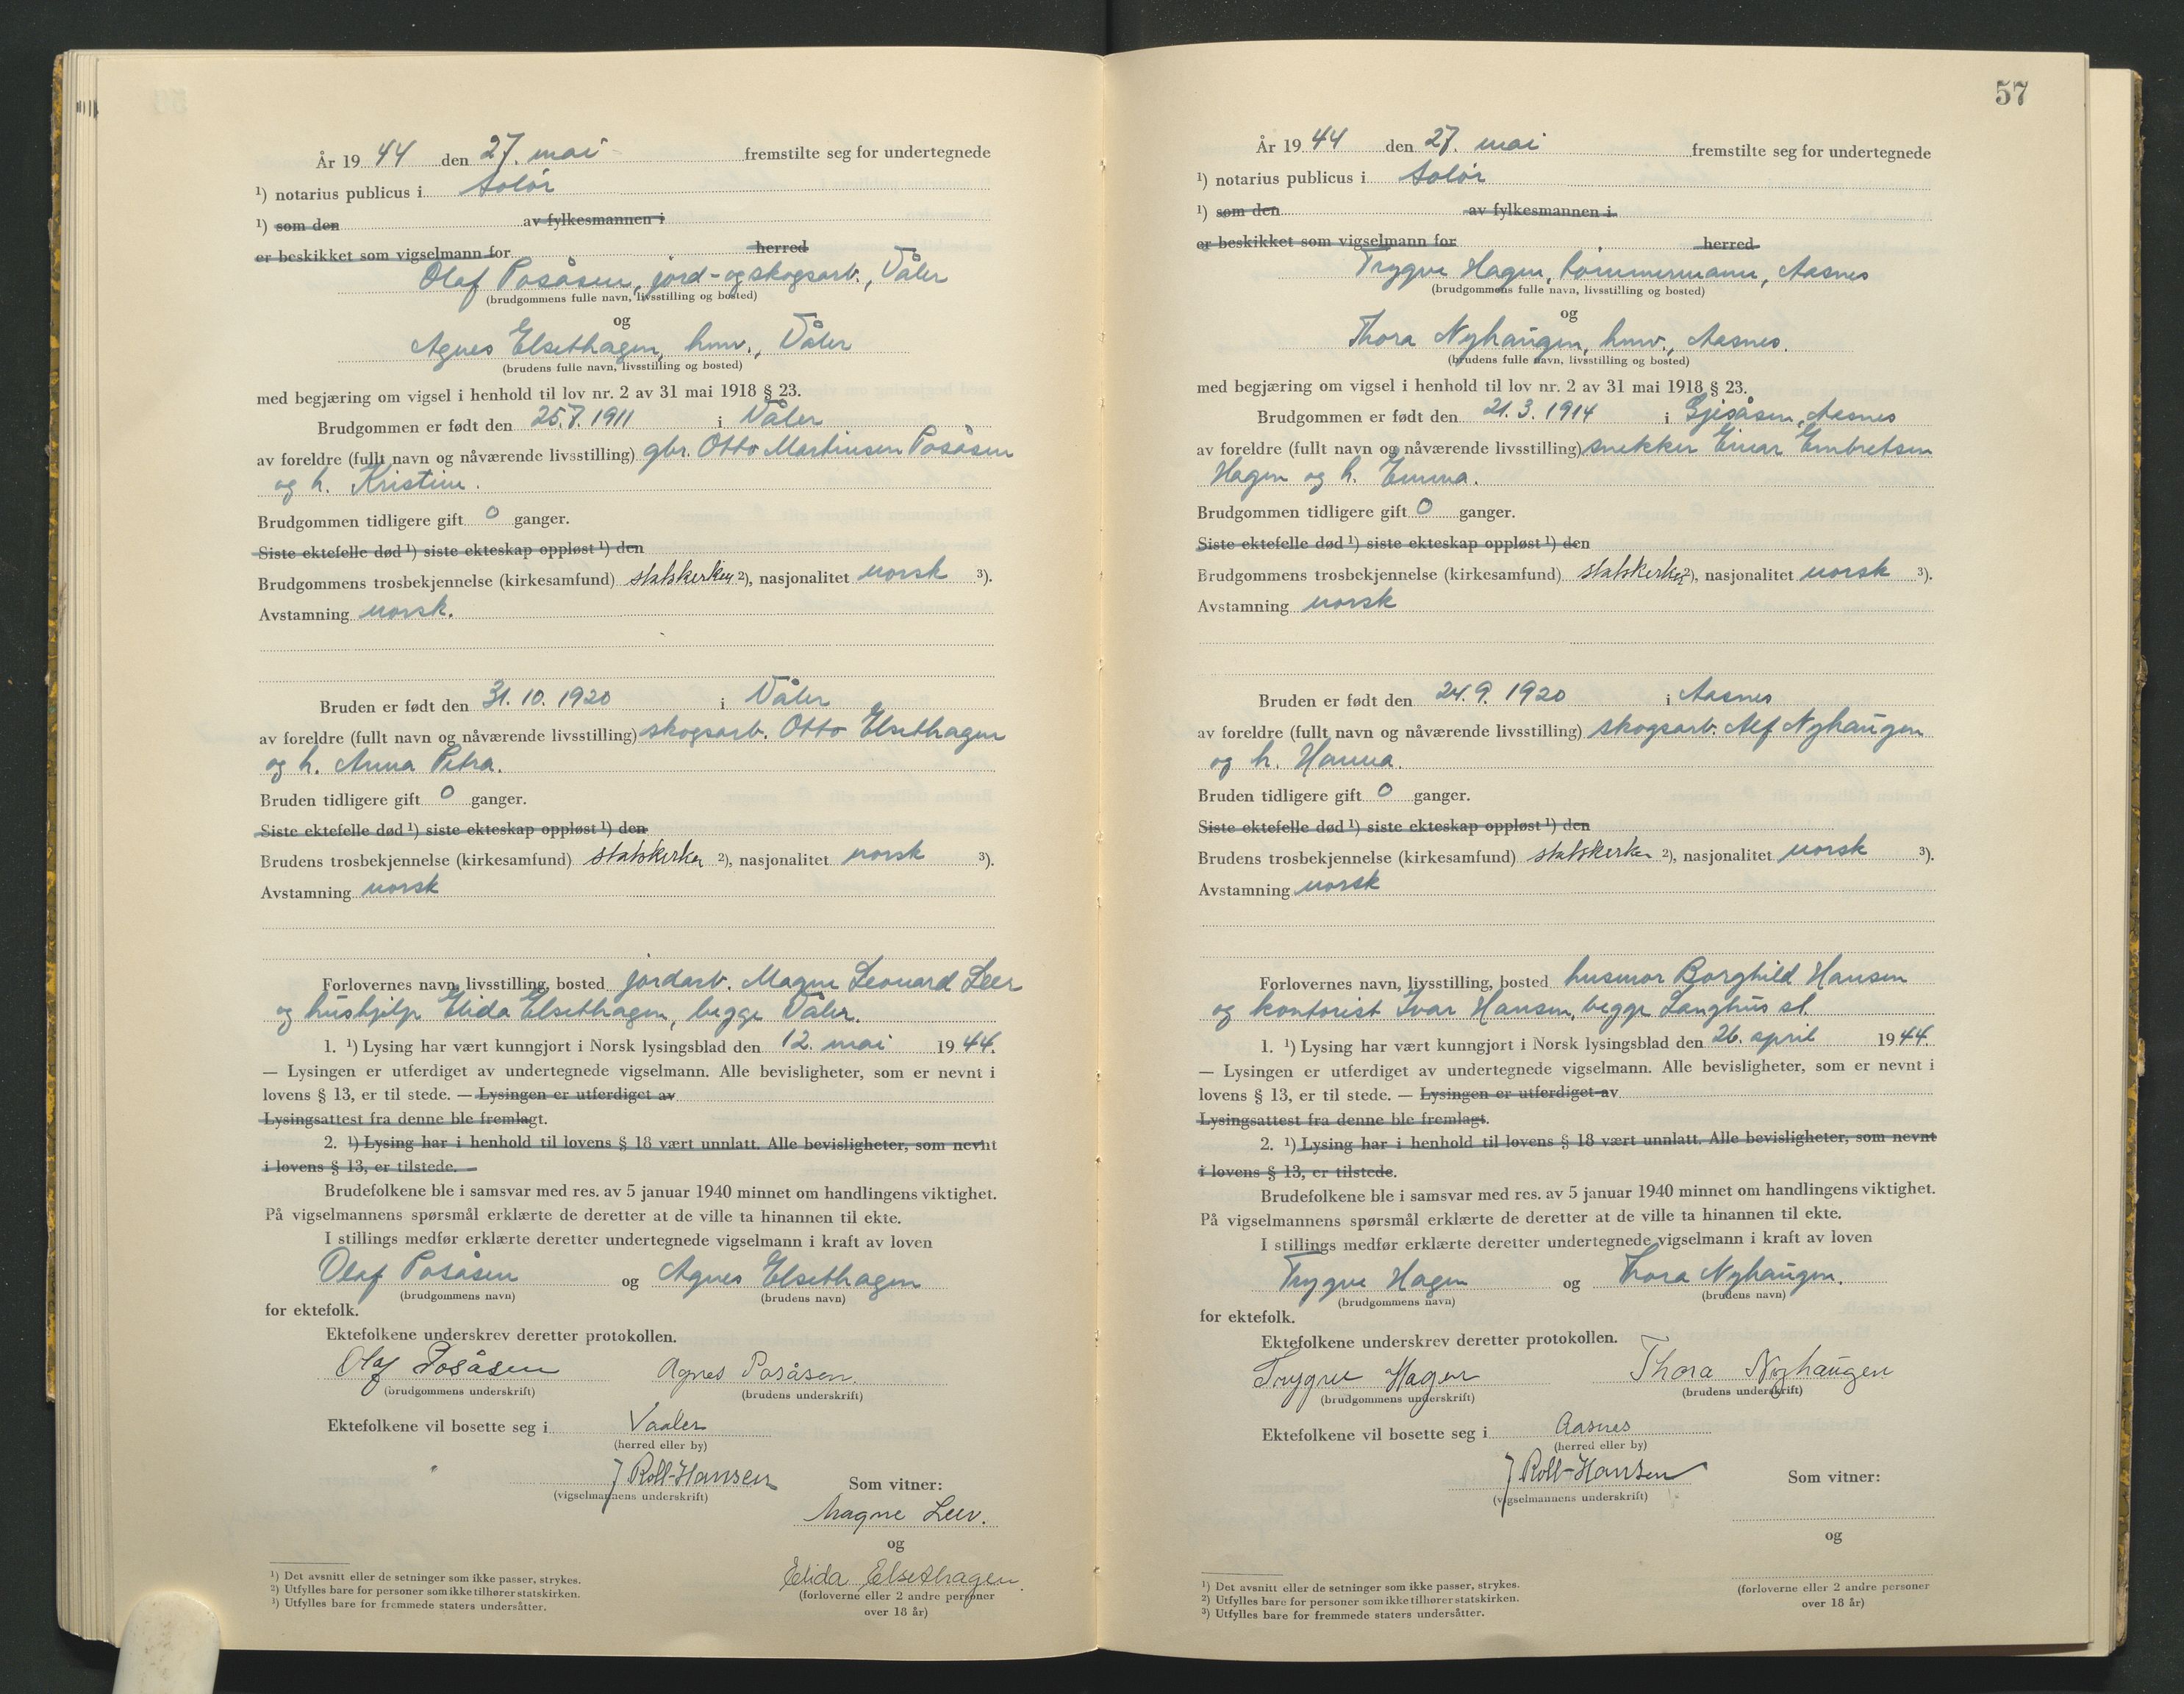 År 19 44 den 27. mai fremstilte seg for undertegnede
¹) notarius publicus i Solør
¹) som den av fylkesmannen i
er beskikket som vigselmann for herred
Olaf Posåsen, jord- og skogsarb., Våler
(brudgommens fulle navn, livsstilling og bosted)
og
Agnes Elsethagen, hmv., Våler
(brudens fulle navn, livsstilling og bosted)
med begjæring om vigsel i henhold til lov nr. 2 av 31 mai 1918 § 23.
Brudgommen er født den 25.7.1911 i Våler
av foreldre (fullt navn og nåværende livsstilling) gbr. Otto Martinsen Posåsen
og h. Kristine.
Brudgommen tidligere gift 0 ganger.
Siste ektefelle død ¹) siste ekteskap oppløst ¹) den
Brudgommens trosbekjennelse (kirkesamfund) statskirken ²), nasjonalitet norsk ³).
Avstamning norsk.
Bruden er født den 31. 10. 1920 i Våler
av foreldre (fullt navn og nåværende livsstilling) skogsarb. Otto Elsethagen
og h. Anna Petra.
Bruden tidligere gift 0 ganger.
Siste ektefelle død ¹) siste ekteskap oppløst ¹) den
Brudens trosbekjennelse (kirkesamfund) statskirken ²), nasjonalitet norsk ³).
Avstamning norsk
Forlovernes navn, livsstilling, bosted jordarb. Magne Leonard Leer
og hushjelp Elida Elsethagen, begge Våler.
1. ¹) Lysing har vært kunngjort i Norsk lysingsblad den 12. mai 19 44.
— Lysingen er utferdiget av undertegnede vigselmann. Alle bevisligheter, som er nevnt i
lovens § 13, er til stede. — Lysingen er utferdiget av
Lysingsattest fra denne ble fremlagt.
2. ¹) Lysing har i henhold til lovens § 18 vært unnlatt. Alle bevisligheter, som nevnt
i lovens § 13, er tilstede. —
Brudefolkene ble i samsvar med res. av 5 januar 1940 minnet om handlingens viktighet.
På vigselmannens spørsmål erklærte de deretter at de ville ta hinannen til ekte.
I stillings medfør erklærte deretter undertegnede vigselmann i kraft av loven
Olaf Posåsen og Agnes Elsethagen
(brudgommens navn) (brudens navn)
for ektefolk.
Ektefolkene underskrev deretter protokollen.
Olaf Posåsen Agnes Posåsen.
(brudgommens underskrift) (brudens underskrift)
Ektefolkene vil bosette seg i Vaaler
(herred eller by)
J Roll-Hansen
(vigselmannens underskrift) Som vitner:
Magne Leer.
og
Elida Elsethagen.
(forloverne eller 2 andre personer
over 18 år)
¹) Det avsnitt eller de setninger som ikke passer, strykes.
²) Utfylles bare for personer som ikke tilhører statskirken.
³) Utfylles bare for fremmede staters undersåtter.
57
År 19 44 den 27. mai fremstilte seg for undertegnede
¹) notarius publicus i Solør
¹) som den av fylkesmannen i
er beskikket som vigselmann for herred
Trygve Hagen, tømmermann, Aasnes
(brudgommens fulle navn, livsstilling og bosted)
og
Thora Nyhaugen, hmv., Aasnes.
(brudens fulle navn, livsstilling og bosted)
med begjæring om vigsel i henhold til lov nr. 2 av 31 mai 1918 § 23.
Brudgommen er født den 21. 3. 1914 i Gjesåsen, Aasnes
av foreldre (fullt navn og nåværende livsstilling) snekker Einar Embretsen
Hagen og h. Emma.
Brudgommen tidligere gift 0 ganger.
Siste ektefelle død ¹) siste ekteskap oppløst ¹) den
Brudgommens trosbekjennelse (kirkesamfund) statskirken ²), nasjonalitet norsk ³).
Avstamning norsk
Bruden er født den 24. 9. 1920 i Aasnes
av foreldre (fullt navn og nåværende livsstilling) skogsarb. Alf Nyhaugen
og h. Hanna.
Bruden tidligere gift 0 ganger.
Siste ektefelle død ¹) siste ekteskap oppløst ¹) den
Brudens trosbekjennelse (kirkesamfund) statskirken ²), nasjonalitet norsk ³).
Avstamning norsk
Forlovernes navn, livsstilling, bosted husmor Borghild Hansen
og kontorist Ivar Hansen, begge Langhus st.
1. ¹) Lysing har vært kunngjort i Norsk lysingsblad den 26. april 19 44.
— Lysingen er utferdiget av undertegnede vigselmann. Alle bevisligheter, som er nevnt i
lovens § 13, er til stede. — Lysingen er utferdiget av
Lysingsattest fra denne ble fremlagt.
2. ¹) Lysing har i henhold til lovens § 18 vært unnlatt. Alle bevisligheter, som nevnt
i lovens § 13, er tilstede.
Brudefolkene ble i samsvar med res. av 5 januar 1940 minnet om handlingens viktighet.
På vigselmannens spørsmål erklærte de deretter at de ville ta hinannen til ekte.
I stillings medfør erklærte deretter undertegnede vigselmann i kraft av loven
Trygve Hagen og Thora Nyhaugen.
(brudgommens navn) (brudens navn)
for ektefolk.
Ektefolkene underskrev deretter protokollen.
Trygve Hagen Thora Nyhaugen
(brudgommens underskrift) (brudens underskrift)
Ektefolkene vil bosette seg i Aasnes
(herred eller by)
J Roll-Hansen Som vitner:
(vigselmannens underskrift)
og
(forloverne eller 2 andre personer
over 18 år)
¹) Det avsnitt eller de setninger som ikke passer, strykes.
²) Utfylles bare for personer som ikke tilhører statskirken.
³) Utfylles bare for fremmede staters undersåtter.